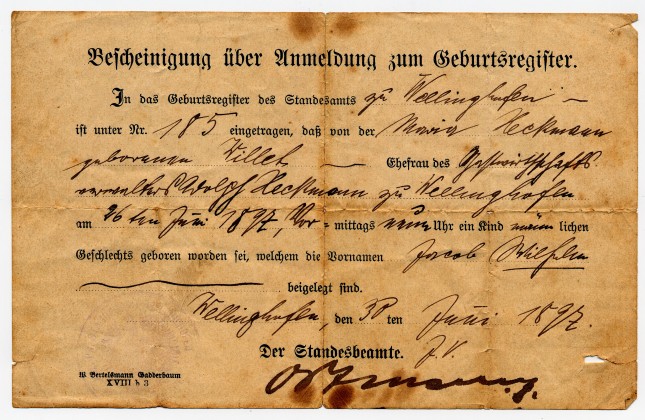 Bescheinigung über Anmeldung zum Geburtsregister.
In das Geburtsregister des Standesamts zu Wellinghofen —
ist unter Nr. 185 eingetragen, daß von der Maria Heckmann
geborenen Ehefrau des Gastwirthschafts
verwalters Adolph Heckmann zu Wellinghofen
am 26ten Juni 1897, Vor=mittags neun Uhr ein Kind männlichen
Geschlechts geboren worden sei, welchem die Vornamen Jacob Wilhelm
beigelegt sind.
Wellinghofen, den 30ten Juni 1897.
Der Standesbeamte. J. V.
W. Bertelsmann Gadderbaum
XVIII b 3